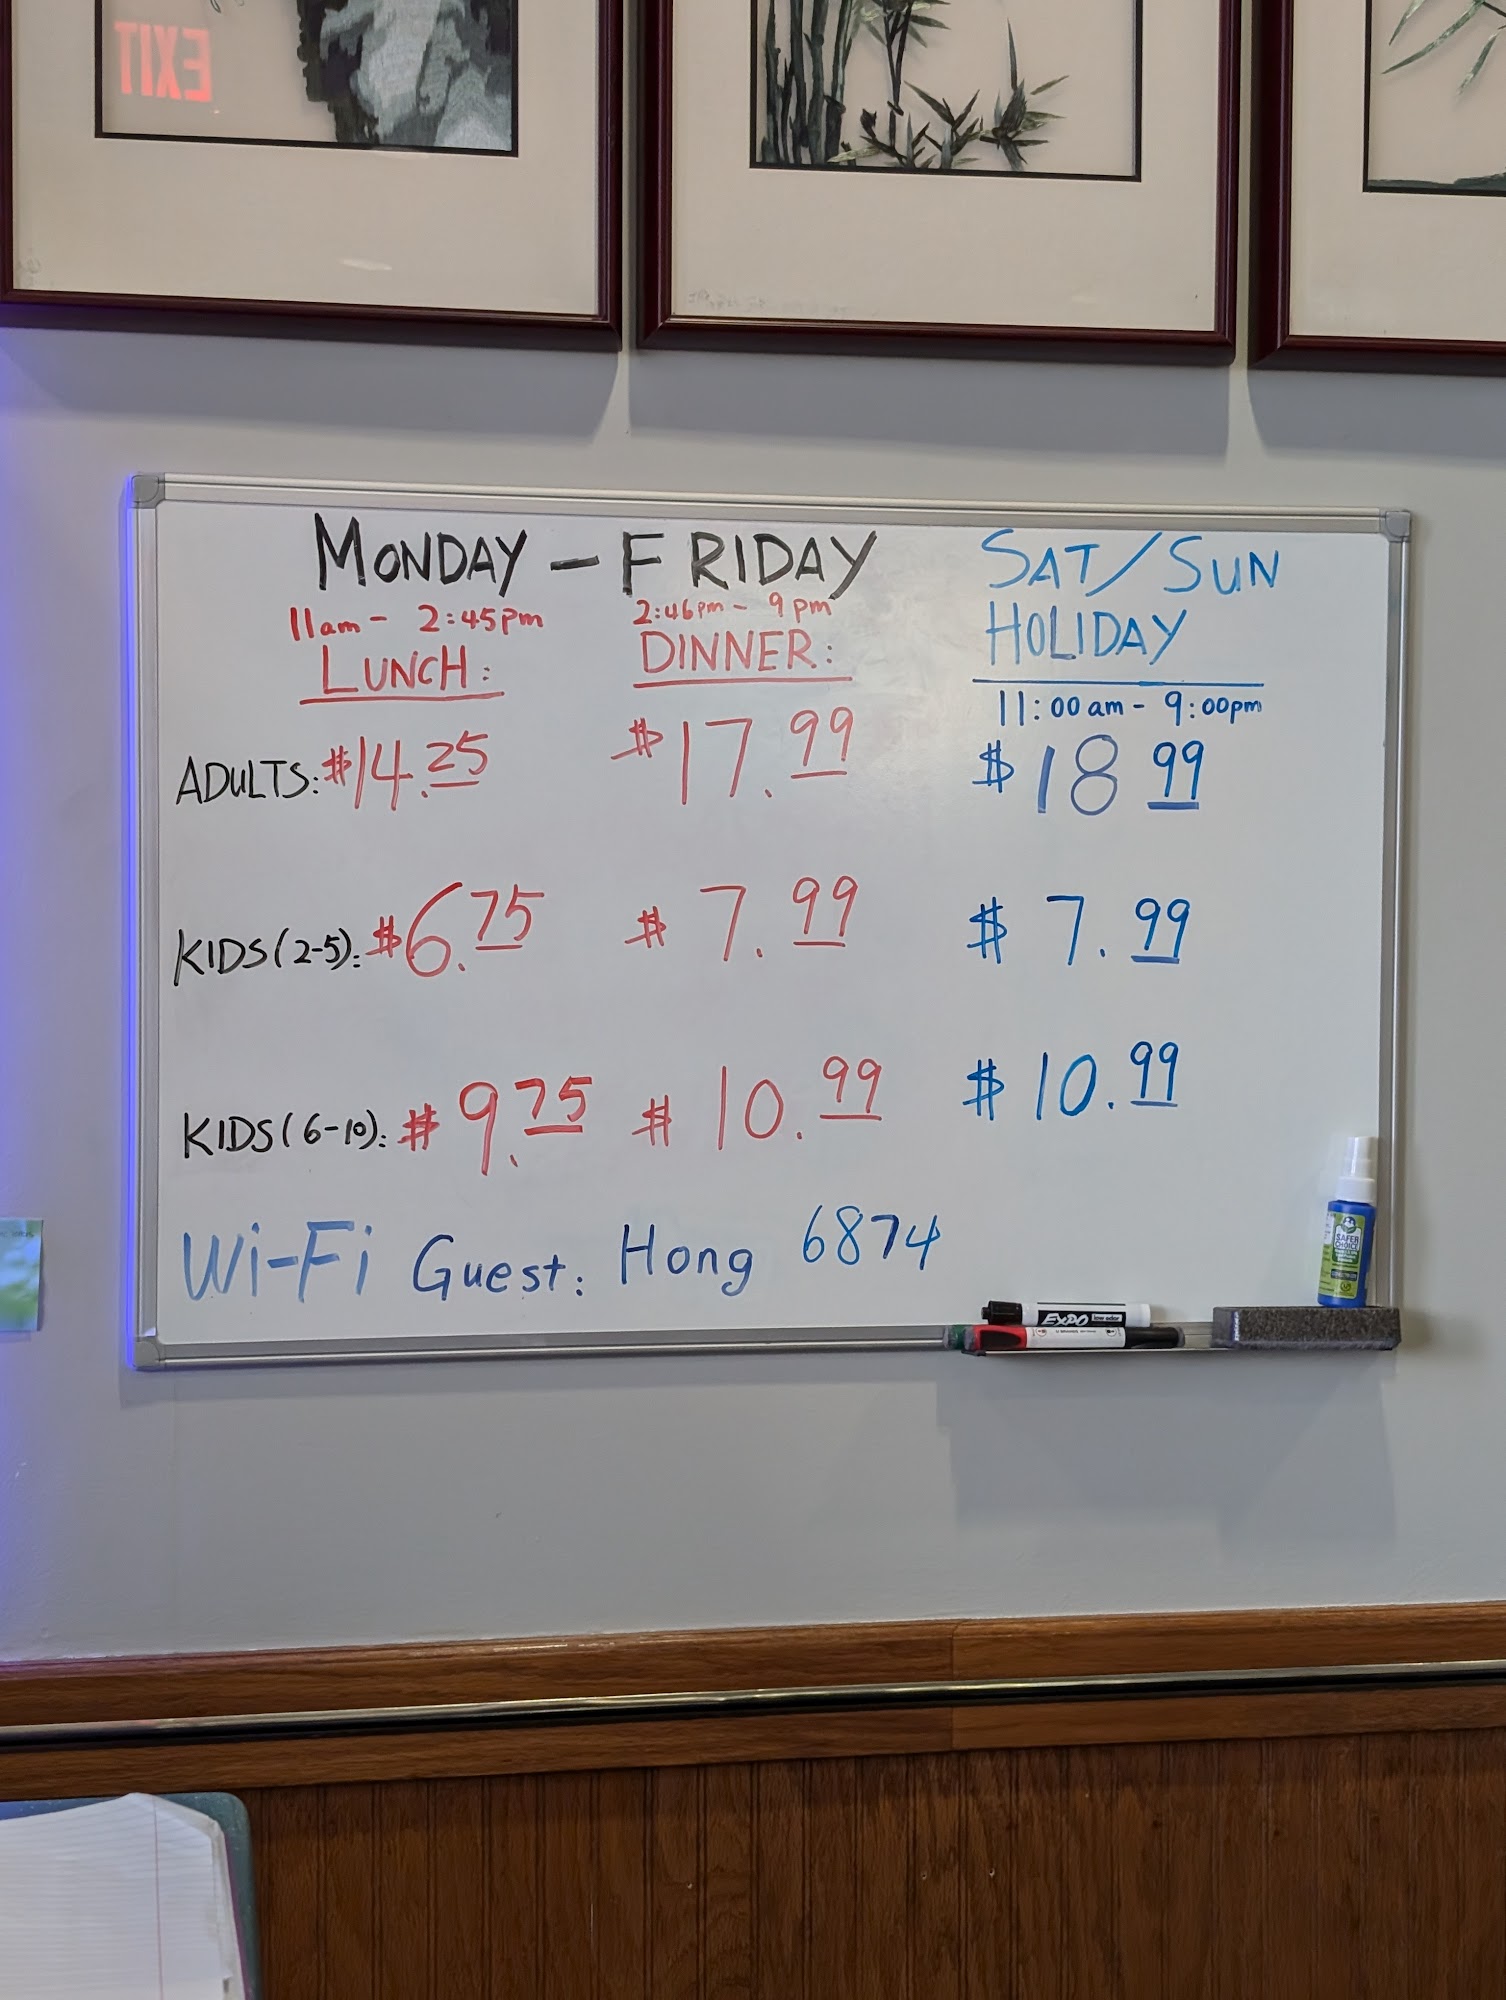 EXIT
MONDAY - FRIDAY
11am - 2:45pm 2:46pm - 9pm
LUNCH: DINNER:
SAT/SUN
HOLIDAY
11:00am - 9:00pm
ADULTS: $14.25 $17.99 $18 99
KIDS(2-5): $6.75 $7.99 $7.99
KIDS(6-10): $9.75 $10.99 $10.99
Wi-Fi Guest: Hong 6874
SAFER
CHOICE
EXPO low odor